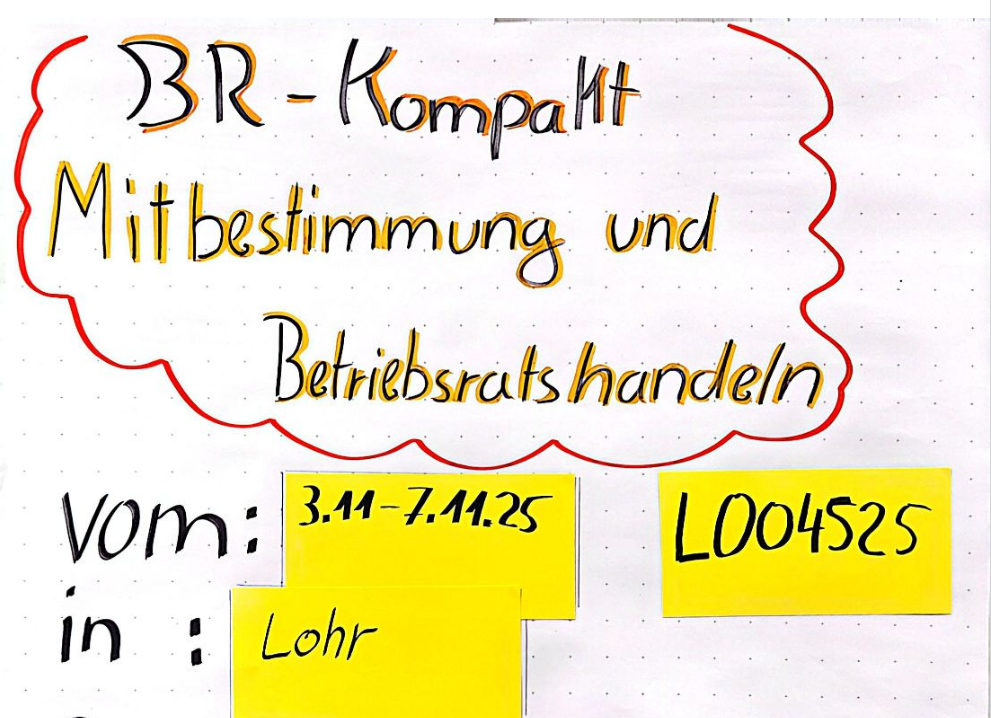 BR - Kompakt
Mitbestimmung und
Betriebsratshandeln
vom: 3.11-7.11.25 LO04525
in : Lohr